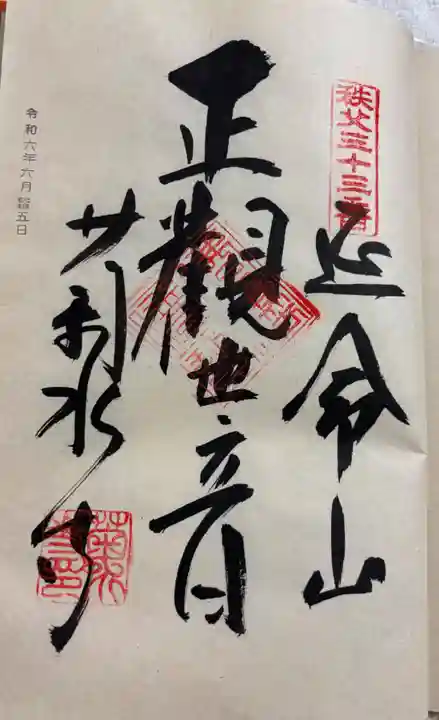 秩父三十三番
延命山
正觀世音
菊水寺
令和六年六月廿五日